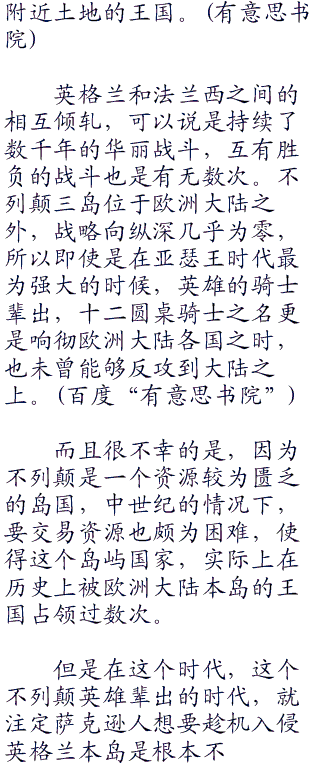 附近土地的王国。(有意思书
院)
英格兰和法兰西之间的
相互倾轧，可以说是持续了
数千年的华丽战斗，互有胜
负的战斗也是有无数次。不
列颠三岛位于欧洲大陆之
外，战略向纵深几乎为零，
所以即使是在亚瑟王时代最
为强大的时候，英雄的骑士
辈出，十二圆桌骑士之名更
是响彻欧洲大陆各国之时，
也未曾能够反攻到大陆之
上。(百度“有意思书院”)
而且很不幸的是，因为
不列颠是一个资源较为匮乏
的岛国，中世纪的情况下，
要交易资源也颇为困难，使
得这个岛屿国家，实际上在
历史上被欧洲大陆本岛的王
国占领过数次。
但是在这个时代，这个
不列颠英雄辈出的时代，就
注定萨克逊人想要趁机入侵
英格兰本岛是根本不